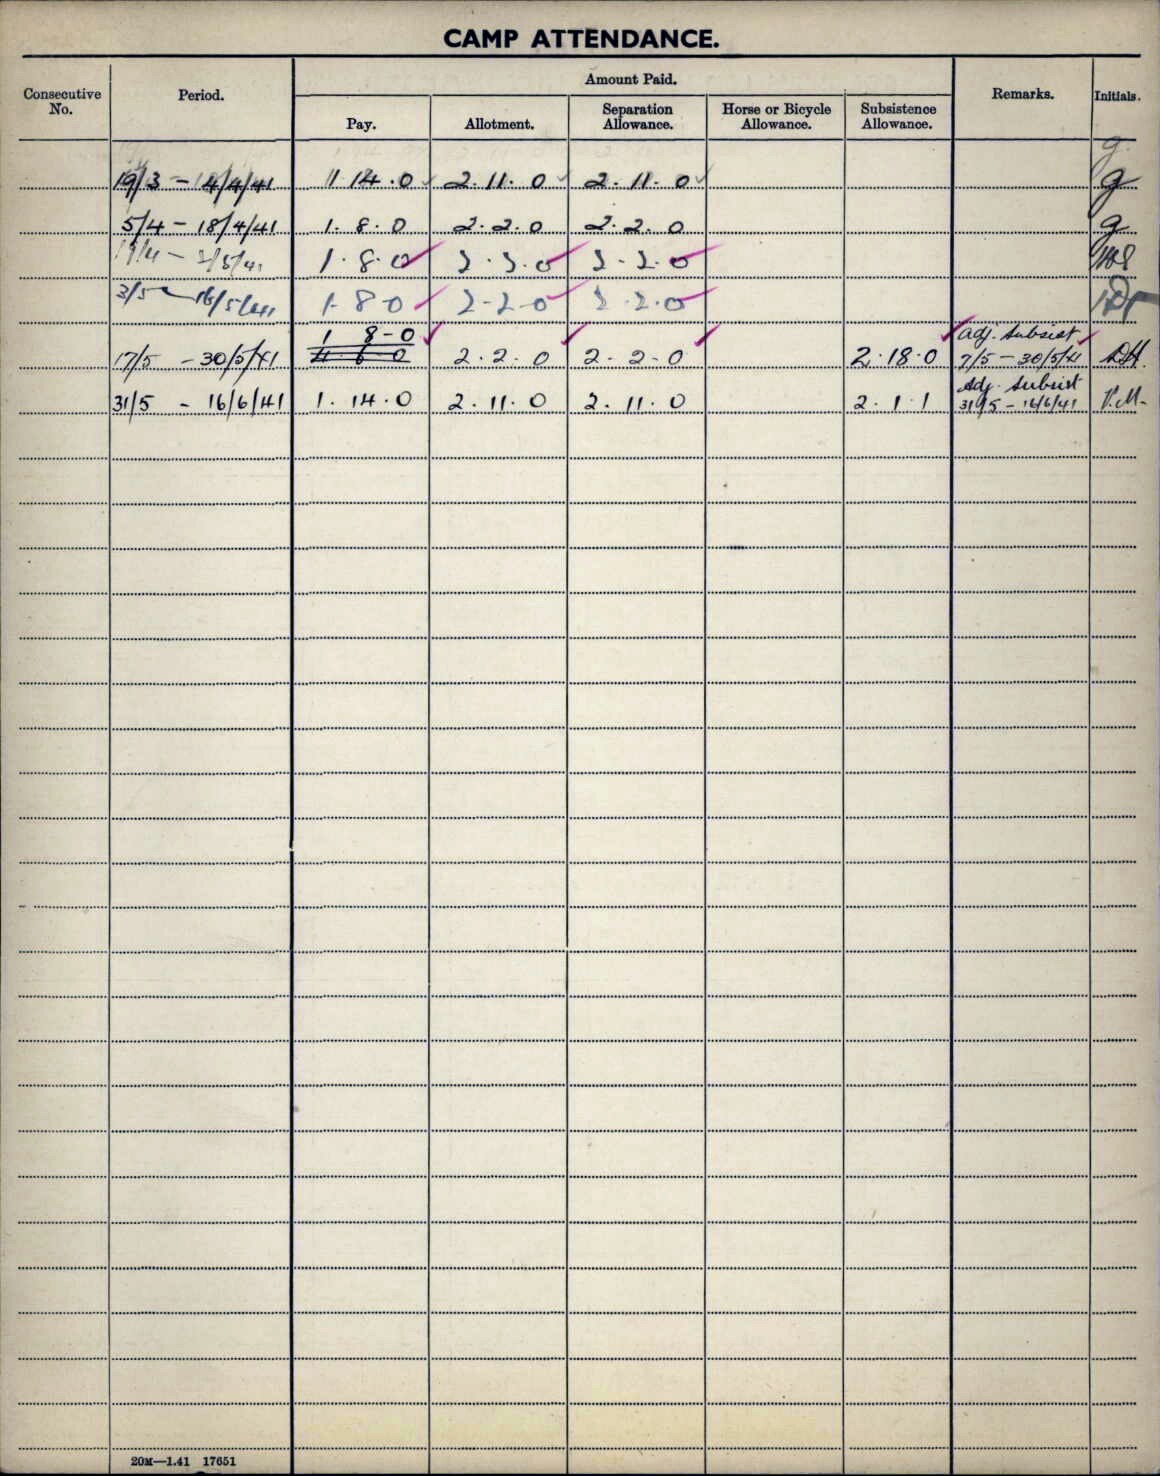 CAMP ATTENDANCE.
Amount Paid.
Consecutive No. Period. Pay. Allotment. Separation Allowance. Horse or Bicycle Allowance. Subsistence Allowance. Remarks. Initials.
g.
19/3 - 4/4/41 1 14.0 2.11.0 2.11.0 g
5/4 - 18/4/41 1.8.0 2.2.0 2.2.0 g
19/4 - 2/5/41 1.8.0 2.2.0 2.2.0
3/5 - 16/5/41 1-8-0 2-2-0 2.2.0
1 8-0 adj. Subsist
17/5 - 30/5/41 4 6 0 2.2.0 2-2-0 2.18.0 7/5 - 30/5/41 DH.
Adj. Subsist
31/5 - 16/6/41 1.14.0 2.11.0 2.11.0 2.1.1 31/5 - 16/6/41 V.M.
20M—1.41 17651